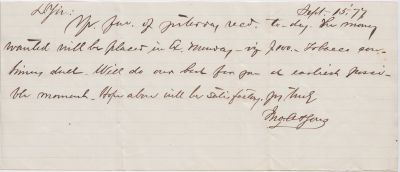 Sept. 15. 77
D Sir:
Yr. fav. of yesterday recd. to-day. The money
wanted will be placed in A. Murray - viz $200. Tobacco con-
tinues dull. Will do our best for you at earliest possi-
ble moment. Hope above will be satisfactory. Yrs truly